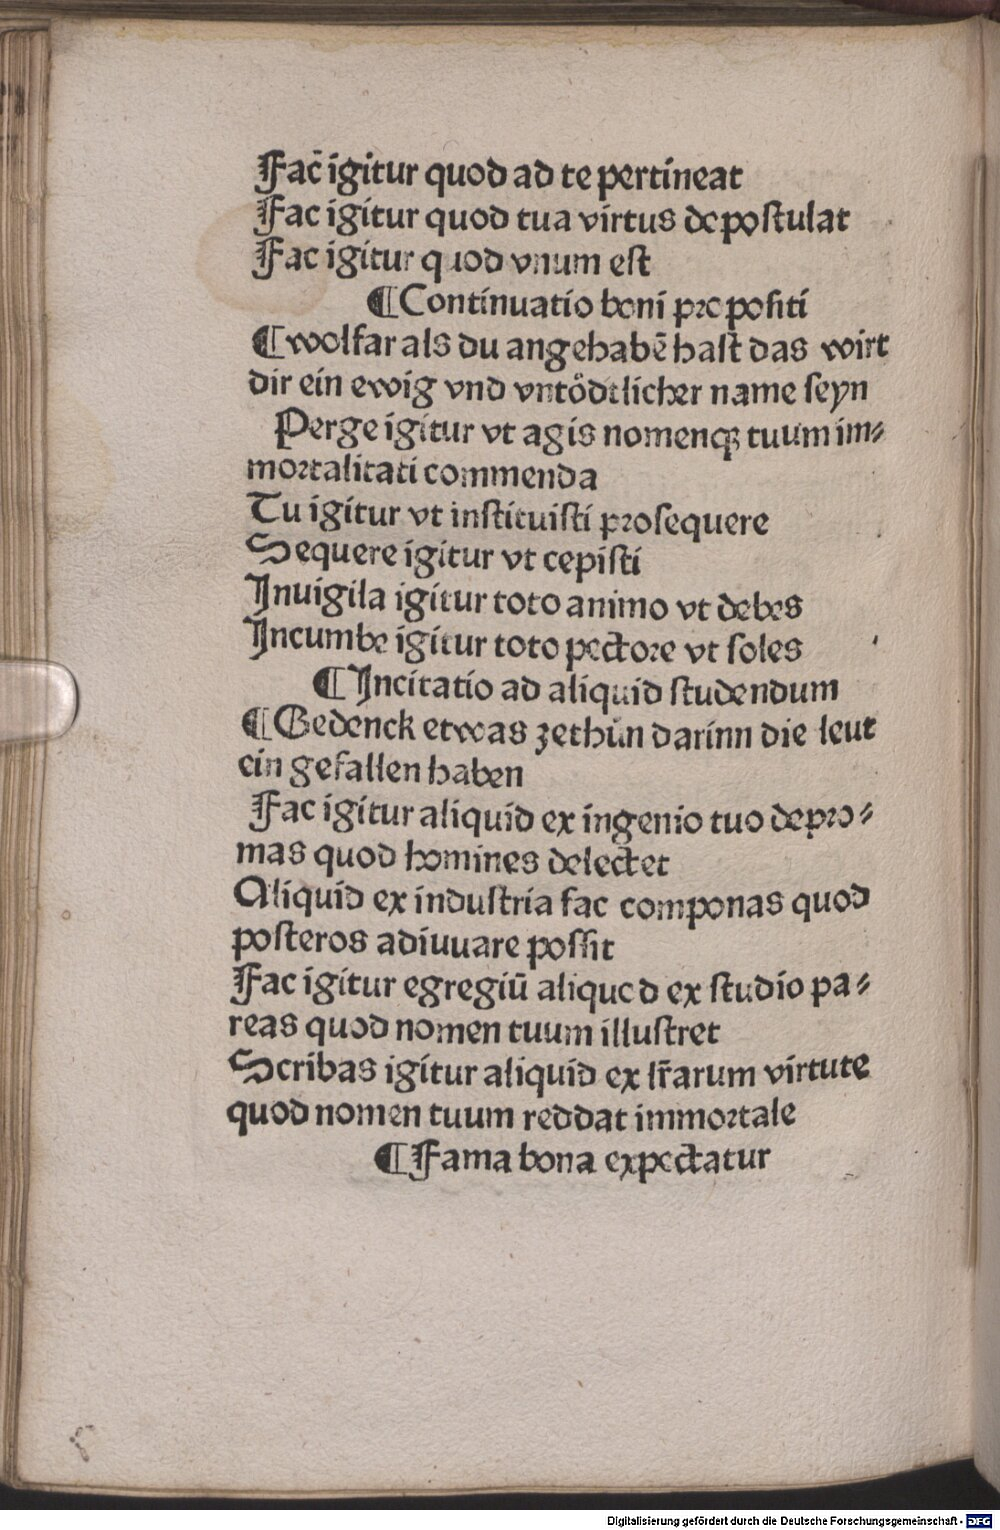 Fac̄ igitur quod ad te pertineat
Fac igitur quod tua virtus depoſtulat
Fac igitur quod vnum eſt
¶Continuatio boni propoſiti
¶wolfar als du angehabē haſt das wirt
dir ein ewig vnd vntoͤdtlicher name ſeyn
Perge igitur vt agis nomenqꝫ tuum im⸗
moꝛtalitati commenda
Tu igitur vt inſtituiſti pꝛoſequere
Sequere igitur vt cepiſti
Inuigila igitur toto animo vt debes
Incumbe igitur toto pectoꝛe vt ſoles
¶Incitatio ad aliquid ſtudendum
¶Gedenck etwas zethůn darinn die leut
ein gefallen haben
Fac igitur aliquid ex ingenio tuo depꝛo⸗
mas quod homines delectet
Aliquid ex induſtria fac componas quod
poſteros adiuuare poſſit
Fac igitur egregiū aliquod ex ſtudio pa⸗
reas quod nomen tuum illuſtret
Scribas igitur aliquid ex lr̄arum virtute
quod nomen tuum reddat immoꝛtale
¶Fama bona expectatur
Digitalisierung gefördert durch die Deutsche Forschungsgemeinschaft - DFG